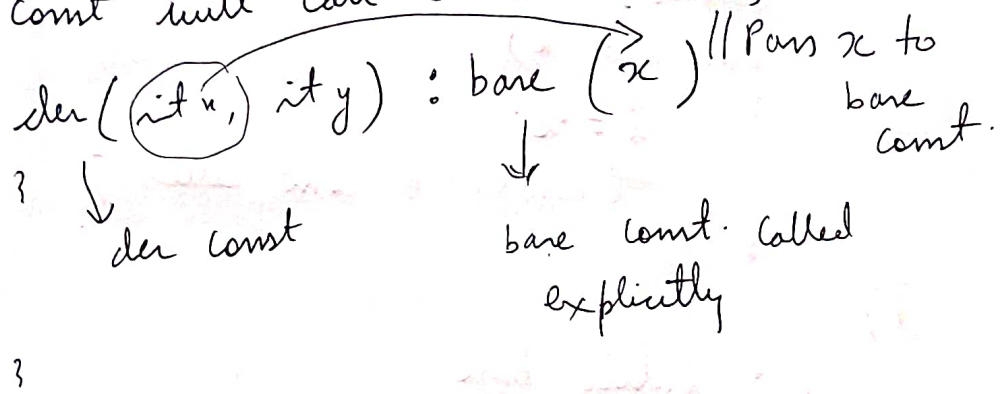 const will call
der (int x, int y) : base (x) // Pass x to
base
const.
}
der const
base const. called
explicitly
}